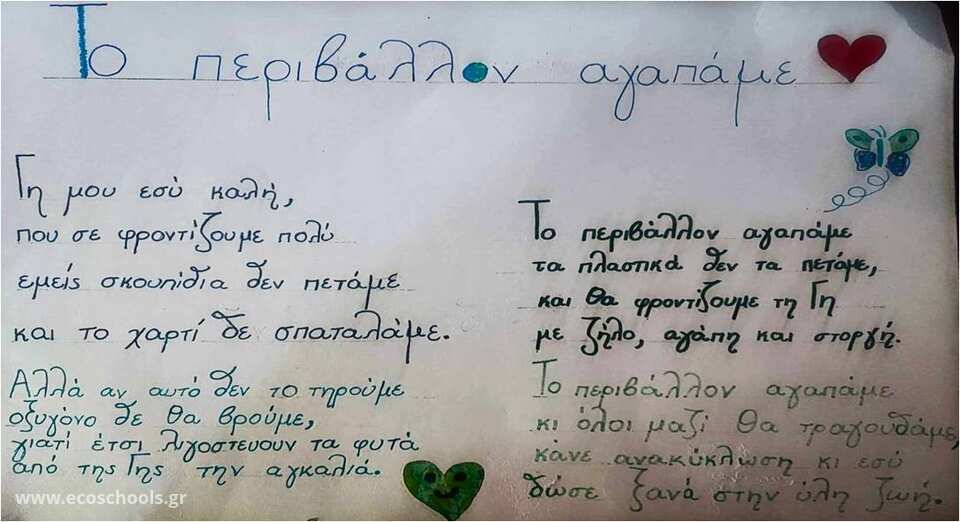 Το περιβάλλον αγαπάμε
Γη μου εσύ καλή,
που σε φροντίζουμε πολύ
εμείς σκουπίδια δεν πετάμε
και το χαρτί δε σπαταλάμε.
Αλλά αν αυτό δεν το τηρούμε
οξυγόνο δε θα βρούμε,
γιατί έτσι λιγοστεύουν τα φυτά
από της Γης την αγκαλιά.
Το περιβάλλον αγαπάμε
τα πλαστικά δεν τα πετάμε,
και θα φροντίζουμε τη Γη
με ζήλο, αγάπη και στοργή.
Το περιβάλλον αγαπάμε
κι όλοι μαζί θα τραγουδάμε,
κάνε ανακύκλωση κι εσύ
δώσε ξανά στην ύλη ζωή.
www.ecoschools.gr